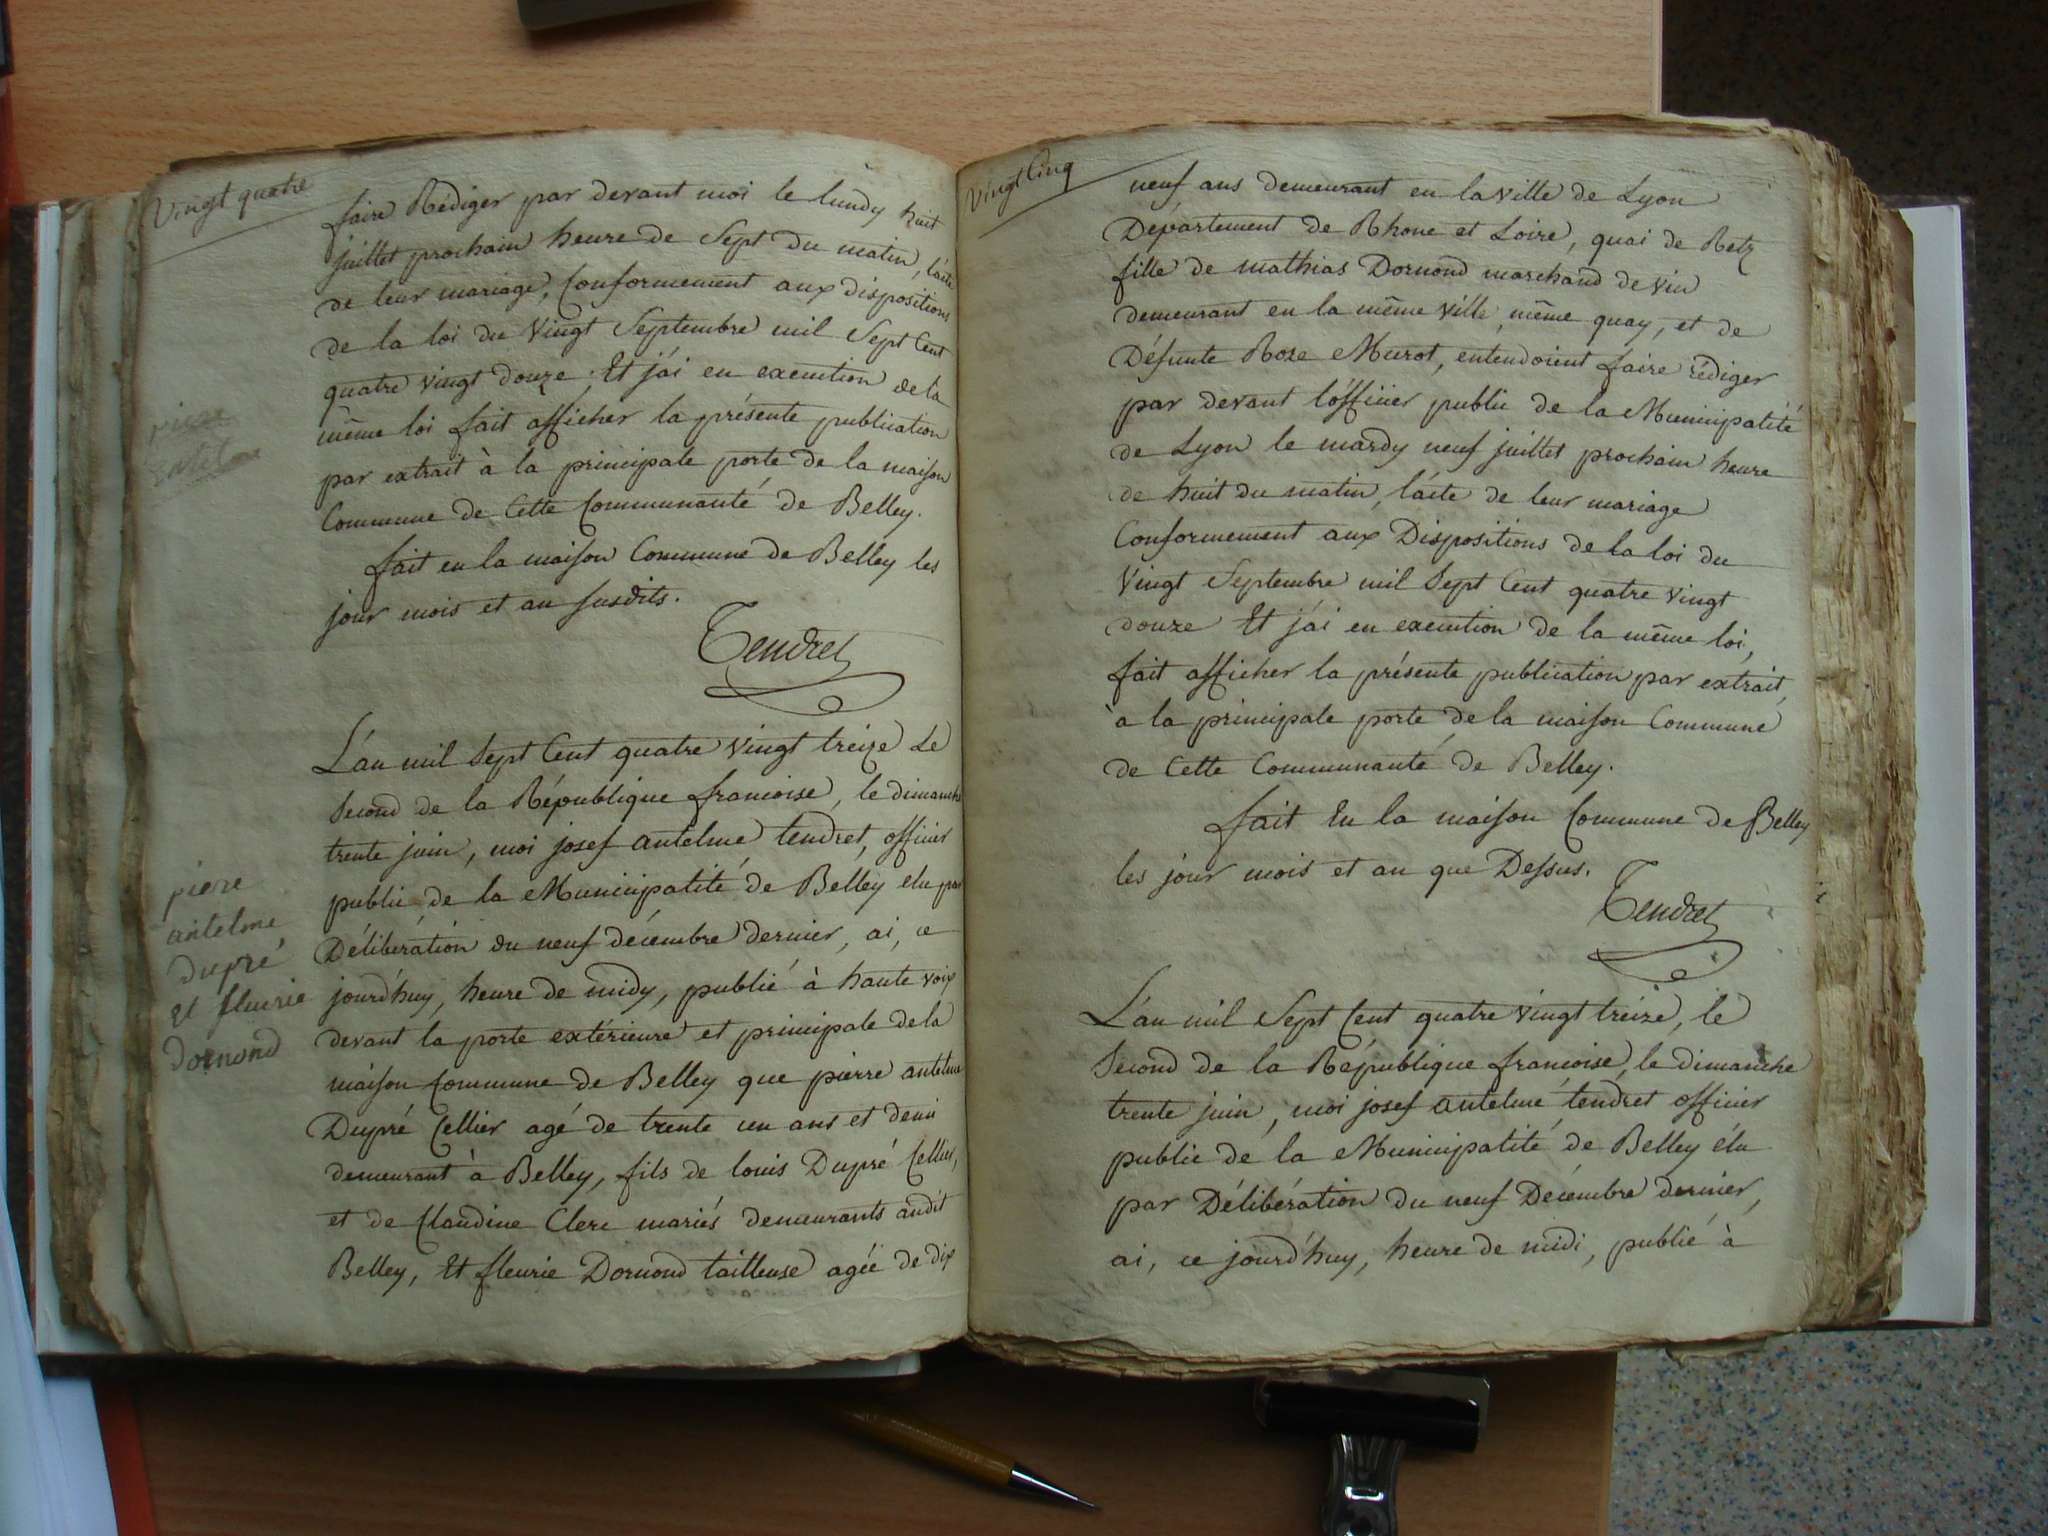 Vingt quatre
faire Rédiger par devant moi le lundy huit
juillet prochain heure de Sept du matin, l'acte
de leur mariage, Conformement aux dispositions
de la loi du Vingt Septembre mil Sept Cent
quatre vingt douze. Et j'ai en execution de la
même loi fait afficher la présente publication
par extrait à la principale porte de la maison
Commune de Cette Communauté de Belley.
fait en la maison Commune de Belley les
jour mois et an susdits.
Tendret
L'an mil Sept Cent quatre vingt treize Le
Second de la République francoise, le dimanche
trente juin, moi josef antelme tendret, officier
public de la Municipalité de Belley elu par
Déliberation du neuf décembre dernier, ai, ce
jourd'huy, heure de midy, publié à haute voix
devant la porte extérieure et principale de la
maison Commune de Belley que pierre antelme
Dupré Cellier agé de trente un ans et demi
demeurant à Belley, fils de louis Dupré Cellier,
et de Claudine Clerc mariés demeurants audit
Belley, Et fleurie Dornond tailleuse agée de dix
pierre
antelme
dupré
et fleurie
dornond
Vingt Cinq
neuf ans demeurant en la ville de Lyon
Département de Rhone et Loire, quai de Retz
fille de mathias Dornond marchand de vin
demeurant en la même ville, même quay, et de
Défunte Rose Murot, entendoient faire rédiger
par devant l'officier public de la Municipalité
de Lyon le mardy neuf juillet prochain heure
de huit du matin, l'acte de leur mariage
Conformement aux Dispositions de la loi du
Vingt Septembre mil Sept Cent quatre vingt
douze Et j'ai en execution de la même loi,
fait afficher la présente publication par extrait,
à la principale porte de la maison Commune
de Cette Communauté de Belley.
fait En la maison Commune de Belley
les jour mois et an que Dessus.
Tendret
L'an mil Sept Cent quatre vingt treize, le
Second de la République francoise, le dimanche
trente juin, moi josef antelme tendret officier
public de la Municipalité de Belley élu
par Délibération du neuf Décembre dernier,
ai, ce jourd'huy, heure de midi, publié à